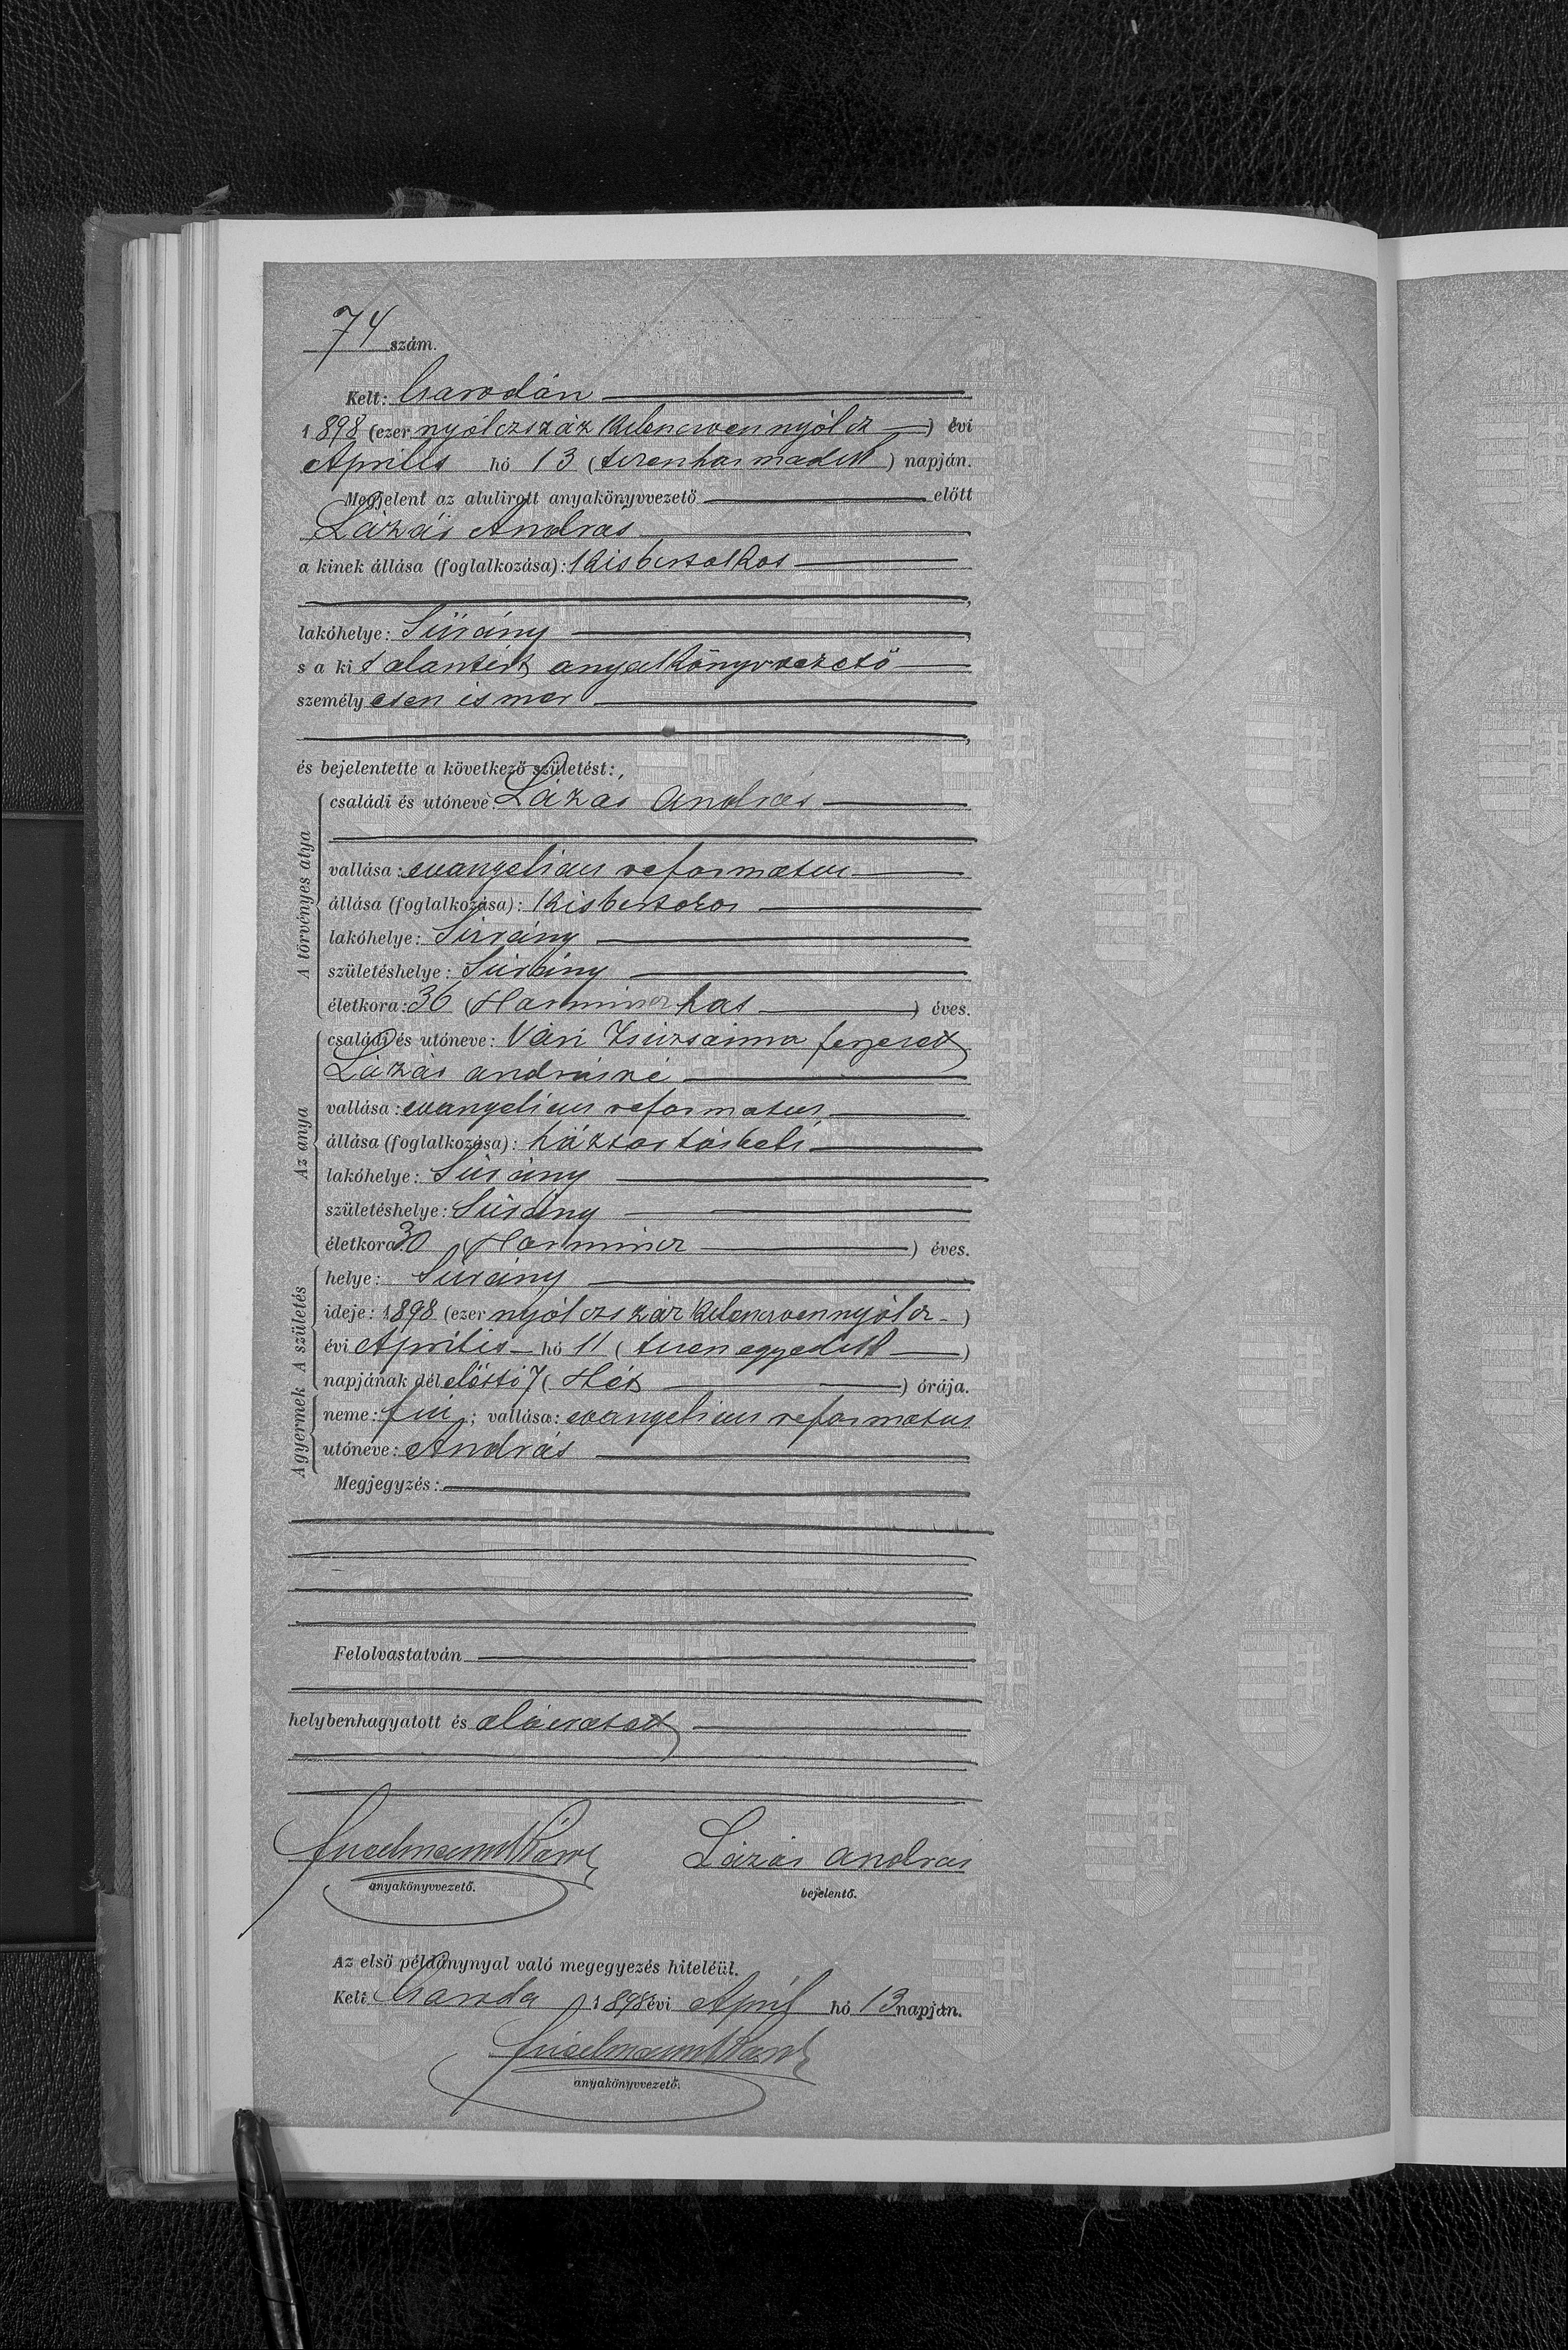 74 szám.
Kelt: Csarodán
1898 (ezer nyólczszáz kilenczvennyólcz) évi
Április hó 13 (tizenharmadik) napján.
Megjelent az alulirott anyakönyvvezető előtt
Lázár András
a kinek állása (foglalkozása): kisbirtokos
lakóhelye: Surány
s a kit alantírt anyakönyvvezető
személyesen ismer
és bejelentette a következő születést:
A törvényes atya
családi és utóneve: Lázár András
vallása: evangelicus reformatus
állása (foglalkozása): kisbirtokos
lakóhelye: Surány
születéshelye: Surány
életkora: 36 (Harminczhat) éves.
Az anya
családi és utóneve: Vári Zsuzsánna
Lázár andrásné
vallása: evangelicus reformatus
állása (foglalkozása): háztartásbeli
lakóhelye: Surány
születéshelye: Surány
életkora: 30 (Harmincz) éves.
A születés
helye: Surány
ideje: 1898 (ezer nyólczszáz kilenczvennyólcz)
évi Április hó 11 (tizenegyedik)
napjának délelőtti 7 (Hét) órája.
A gyermek
neme: fiú; vallása: evangelicus reformatus
utóneve: András
Megjegyzés:
Felolvastatván
helybenhagyatott és aláiratott
anyakönyvvezető.
Lázár András
bejelentő.
Az első példánynyal való megegyezés hiteléül.
Kelt Csaroda 1898 évi April hó 13 napján.
anyakönyvvezető.